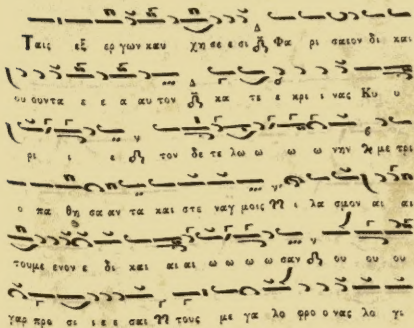 Ταις εξ εργων καυ χη σε ε σι Φα ρι σαιον δι και
ου ουντα ε ε α αυτον κα τε ε κρι νας Κυ υ
ρι ι ε τον δε τε λω ω ω ω νην με τρι
ο πα θη σα αν τα και στε ναγ μοις ι λα σμον αι αι
τουμε ενον ε δι και αι αι ω ω ω ω σαν ου ου ου
γαρ προ σι ι ε ε σαι τους με γα λο φρο ο νας λο γι